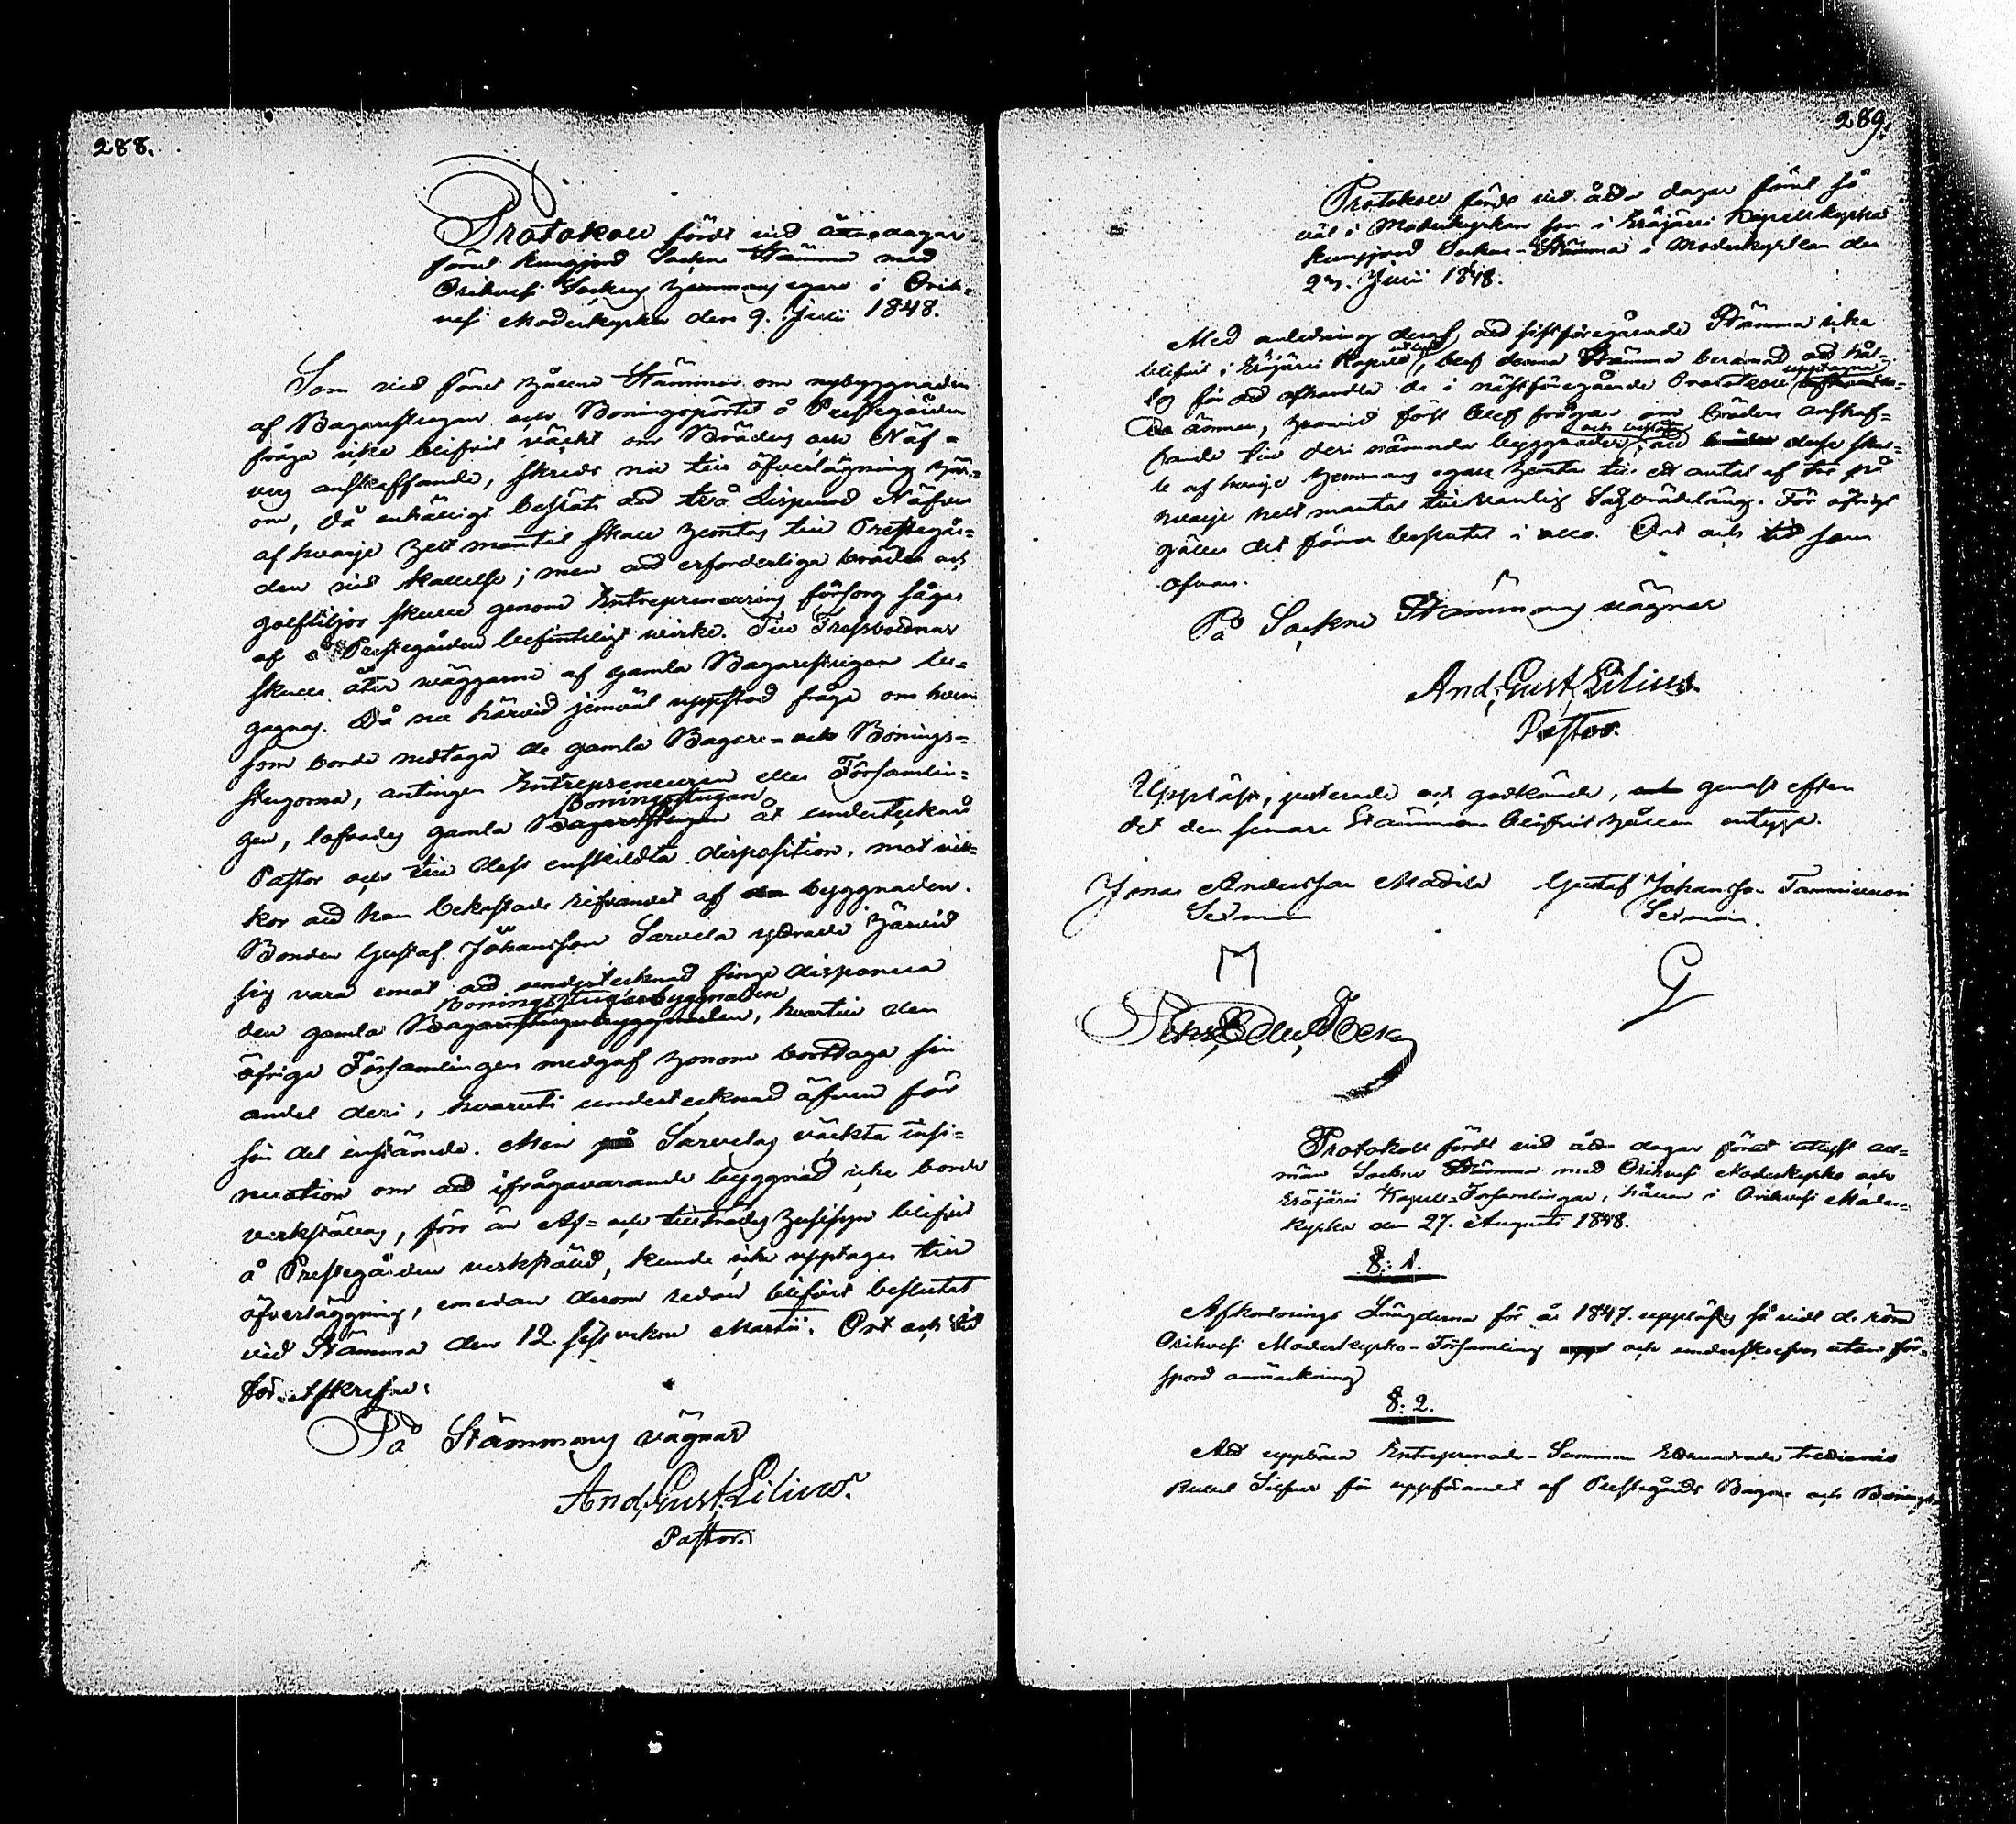 288.
Protokoll fördt vid åtta dagar
förut kungjord Sockne Stämma med
Orihvesi Sockns hemmans egare i Orih-
vesi Moderkyrka den 9. Julii 1848.
Som vid förut hållna Stämmor om nybyggnaden
af Bagarestugan och Boningspörtet å Prestegården
fråga icke blifvit väckt om Bräders och Näf-
vers anskaffande, skreds nu till öfverläggning här-
om, då enhälligt beslöts att två Lispund Näfver
af hvarje helt mantal skall hemtas till Prestegår-
den vid kallelse; men att erforderliga bräder och
golftiljor skulle genom Entrepreneurens försorg sågas
af å Prestegården befinteligt virke. Till
skulle åter väggarne af gamla Bagarestugan be-
gagnas. Då nu härvid jemväl uppstod fråga om hvem
som borde nedtaga de gamla Bagare- och Bonings-
stugorna, antingen Entrepreneuren eller Församlin-
gen, lofvades gamla Bagarestugan Boningsstugan åt undertecknad
Pastor och till dess enskildta disposition, mot vil-
kor att han bekostade rifvandet af den byggnaden.
Bonden Gustaf Johansson Sarvela yttrade härvid
sig vara emot att undertecknad finge disponera
den gamla Bagarestugubyggnaden Boningsstugubyggnaden, hvartill den
öfriga Församlingen medgaf honom borttaga sin
andel deri, hvaruti undertecknad äfven för
sin del instämde. Men på Sarvelas väckta insi-
nuation om att ifrågavarande byggnad icke borde
verkställas, förr än Af- och tillträdes husesyn blifvit
å Prestegården verkstäld, kunde icke upptagas till
öfverläggning, emedan derom redan blifvit beslutet
vid Stämma den 12. sistvekne Martii. Ort och tid
förutskrefne:
På Stämmans vägnar
And. Gust. Lilius.
Pastor.
289.
Protokoll fördt vid åtta dagar förut så
väl i Moderkyrkan som i Eräjärvi Kapellkyrka
kungjord Sockne-Stämma i Moderkyrkan den
23. Julii 1848.
Med anledning deraf, att sistföregående Stämma icke
blifvit i Eräjärvi Kapell utlyst, blef denna Stämma beramad att hål-
las för att afhandla de i nästföregående Protokoll upptagna
ämnen, hvarvid först blef frågan om bräders anskaf-
fande till deri nämnda byggnader och beslöts, att bräder desse skul-
le af hvarje hemmans egare hemtas till ett antal af tre på
hvarje helt mantal till vanlig Sågbrädslängd. För öfrigt
gäller det förra beslutet i allo. Ort och tid som
ofvan.
På Sockne Stämmans vägnar
And. Gust. Lilius.
Pastor.
Uppläst, justerade och godkände, genast efter
det den senare Stämman blifvit hållen intyga.
Jonas Andersson Madila Gustaf Johansson Tammimoni
Sexman Sexman.
M G
Protokoll fördt vid åtta dagar förut utlyst all-
män Sockne Stämma med Orihvesi Moderkyrko och
Eräjärvi Kapell-Församlingar, hållen i Orihvesi Moder-
kyrka den 27. Augusti 1848.
§: 1.
Afkortnings Längderna för år 1847. upplästes så vidt de röra
Orihvesi Moderkyrko-Församling och underskrefvos utan för-
spord anmärkning
§: 2.
Att uppbära Entreprenade-Summan Etthundrade
Rubel Silfver för uppförandet af Prestegårds Bagare och Bonings-